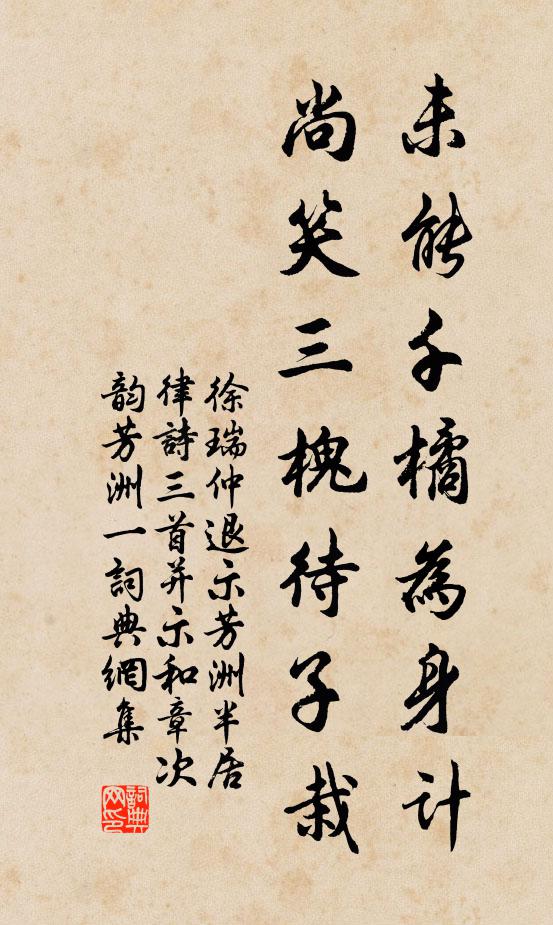 未能千橘為身计
尚笑三槐待子栽
徐瑞仲退示芳洲半居
律詩三首并示和章次
韵芳洲一詞典網集
詞典网印